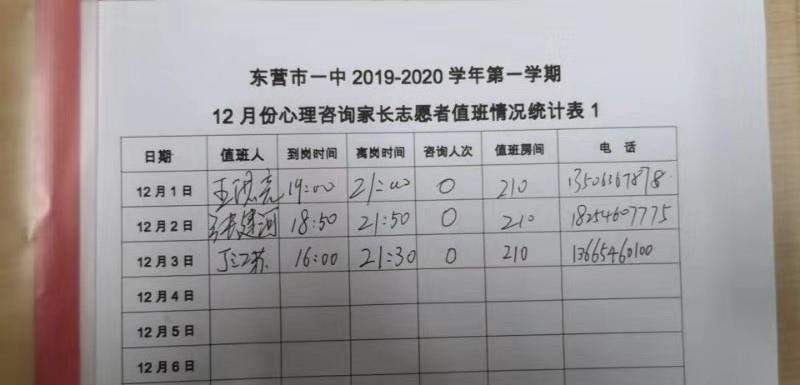 东营市一中 2019-2020 学年第一学期
12 月份心理咨询家长志愿者值班情况统计表 1
日期 值班人 到岗时间 离岗时间 咨询人次 值班房间 电 话
12 月 1 日 19:00 21:00 0 210
12 月 2 日 张建河 18:50 21:50 0 210 18254607775
12 月 3 日 丁江苏 16:00 21:30 0 210 13665460100
12 月 4 日
12 月 5 日
12 月 6 日